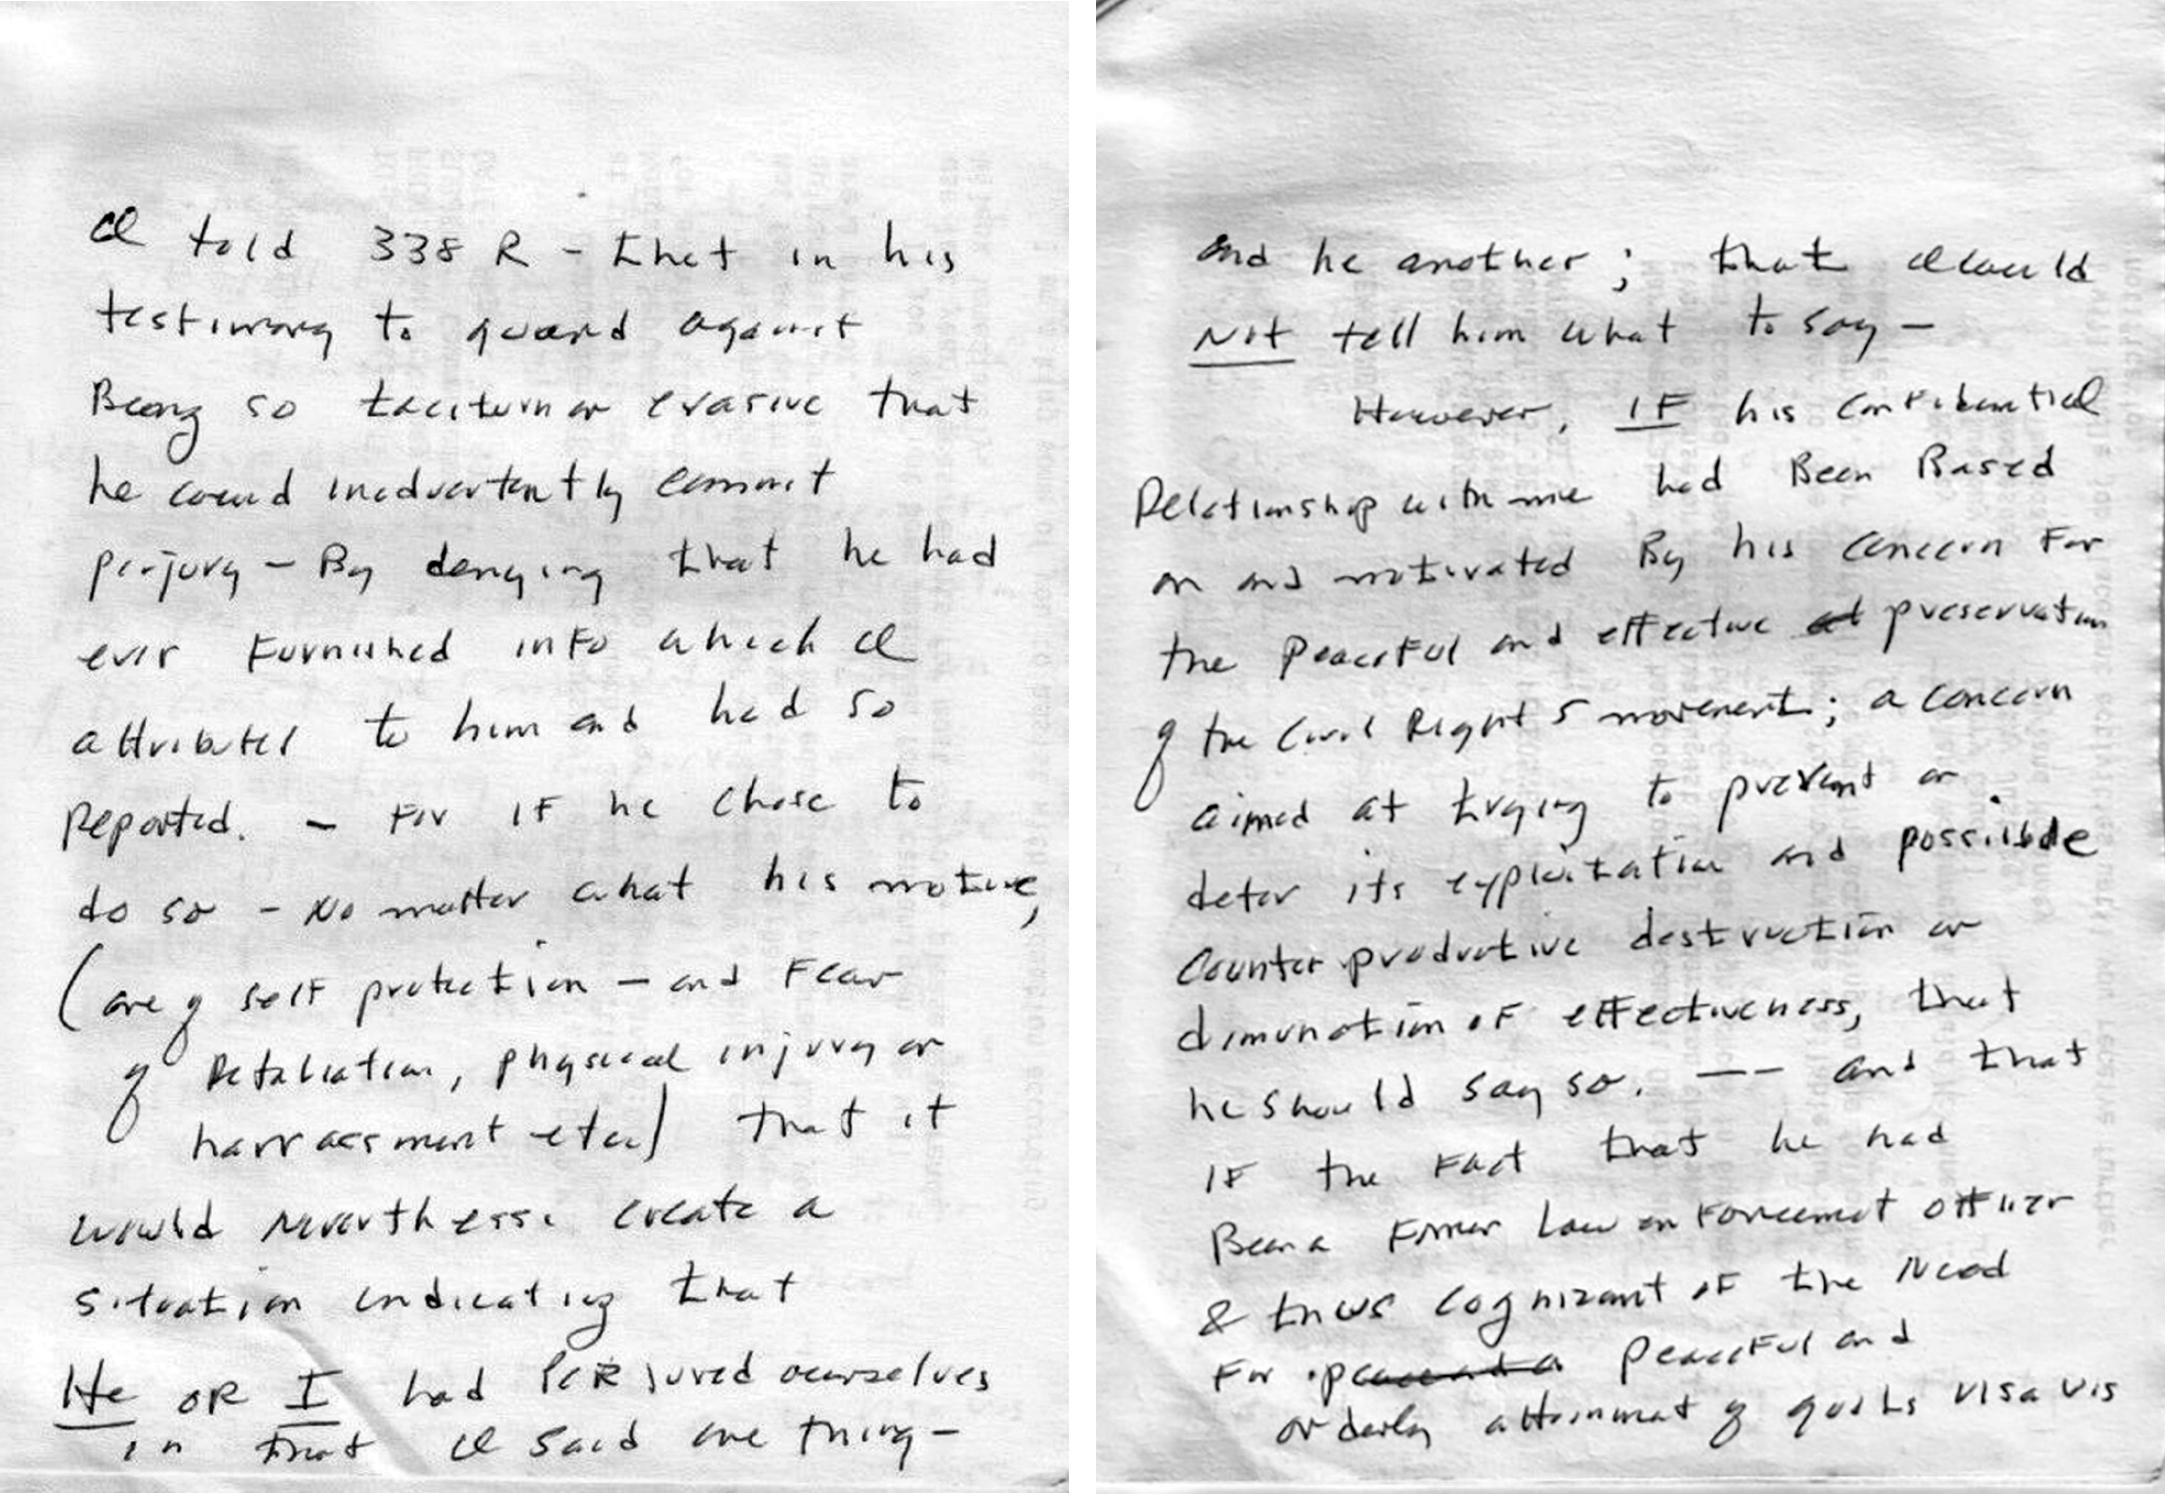 I told 338 R - that in his
testimony to guard against
Being so taciturn or evasive that
he could inadvertently commit
perjury - By denying that he had
ever Furnished info which I
attributed to him and had so
Reported. - For IF he chose to
do so - No matter what his motive,
(one of self protection - and Fear
of Retaliation, physical injury or
harrassment etc.) that it
would Nevertheless. create a
situation indicating that
He OR I had PERjured ourselves
in that I said one thing -
and he another; that I could
Not tell him what to say -
However, IF his Confidential
Relationship with me had Been Based
on and motivated By his concern For
the Peaceful and effective preservation
of the Civil Rights movement; a concern
aimed at trying to prevent or
deter its exploitation and possible
Counter productive destruction or
dimunation of effectiveness, that
he should say so. -- and that
IF the Fact that he had
Been a Former Law enforcement officer
& thus Cognizant of the Need
For Peaceful and
orderly attainment of goals vis a vis